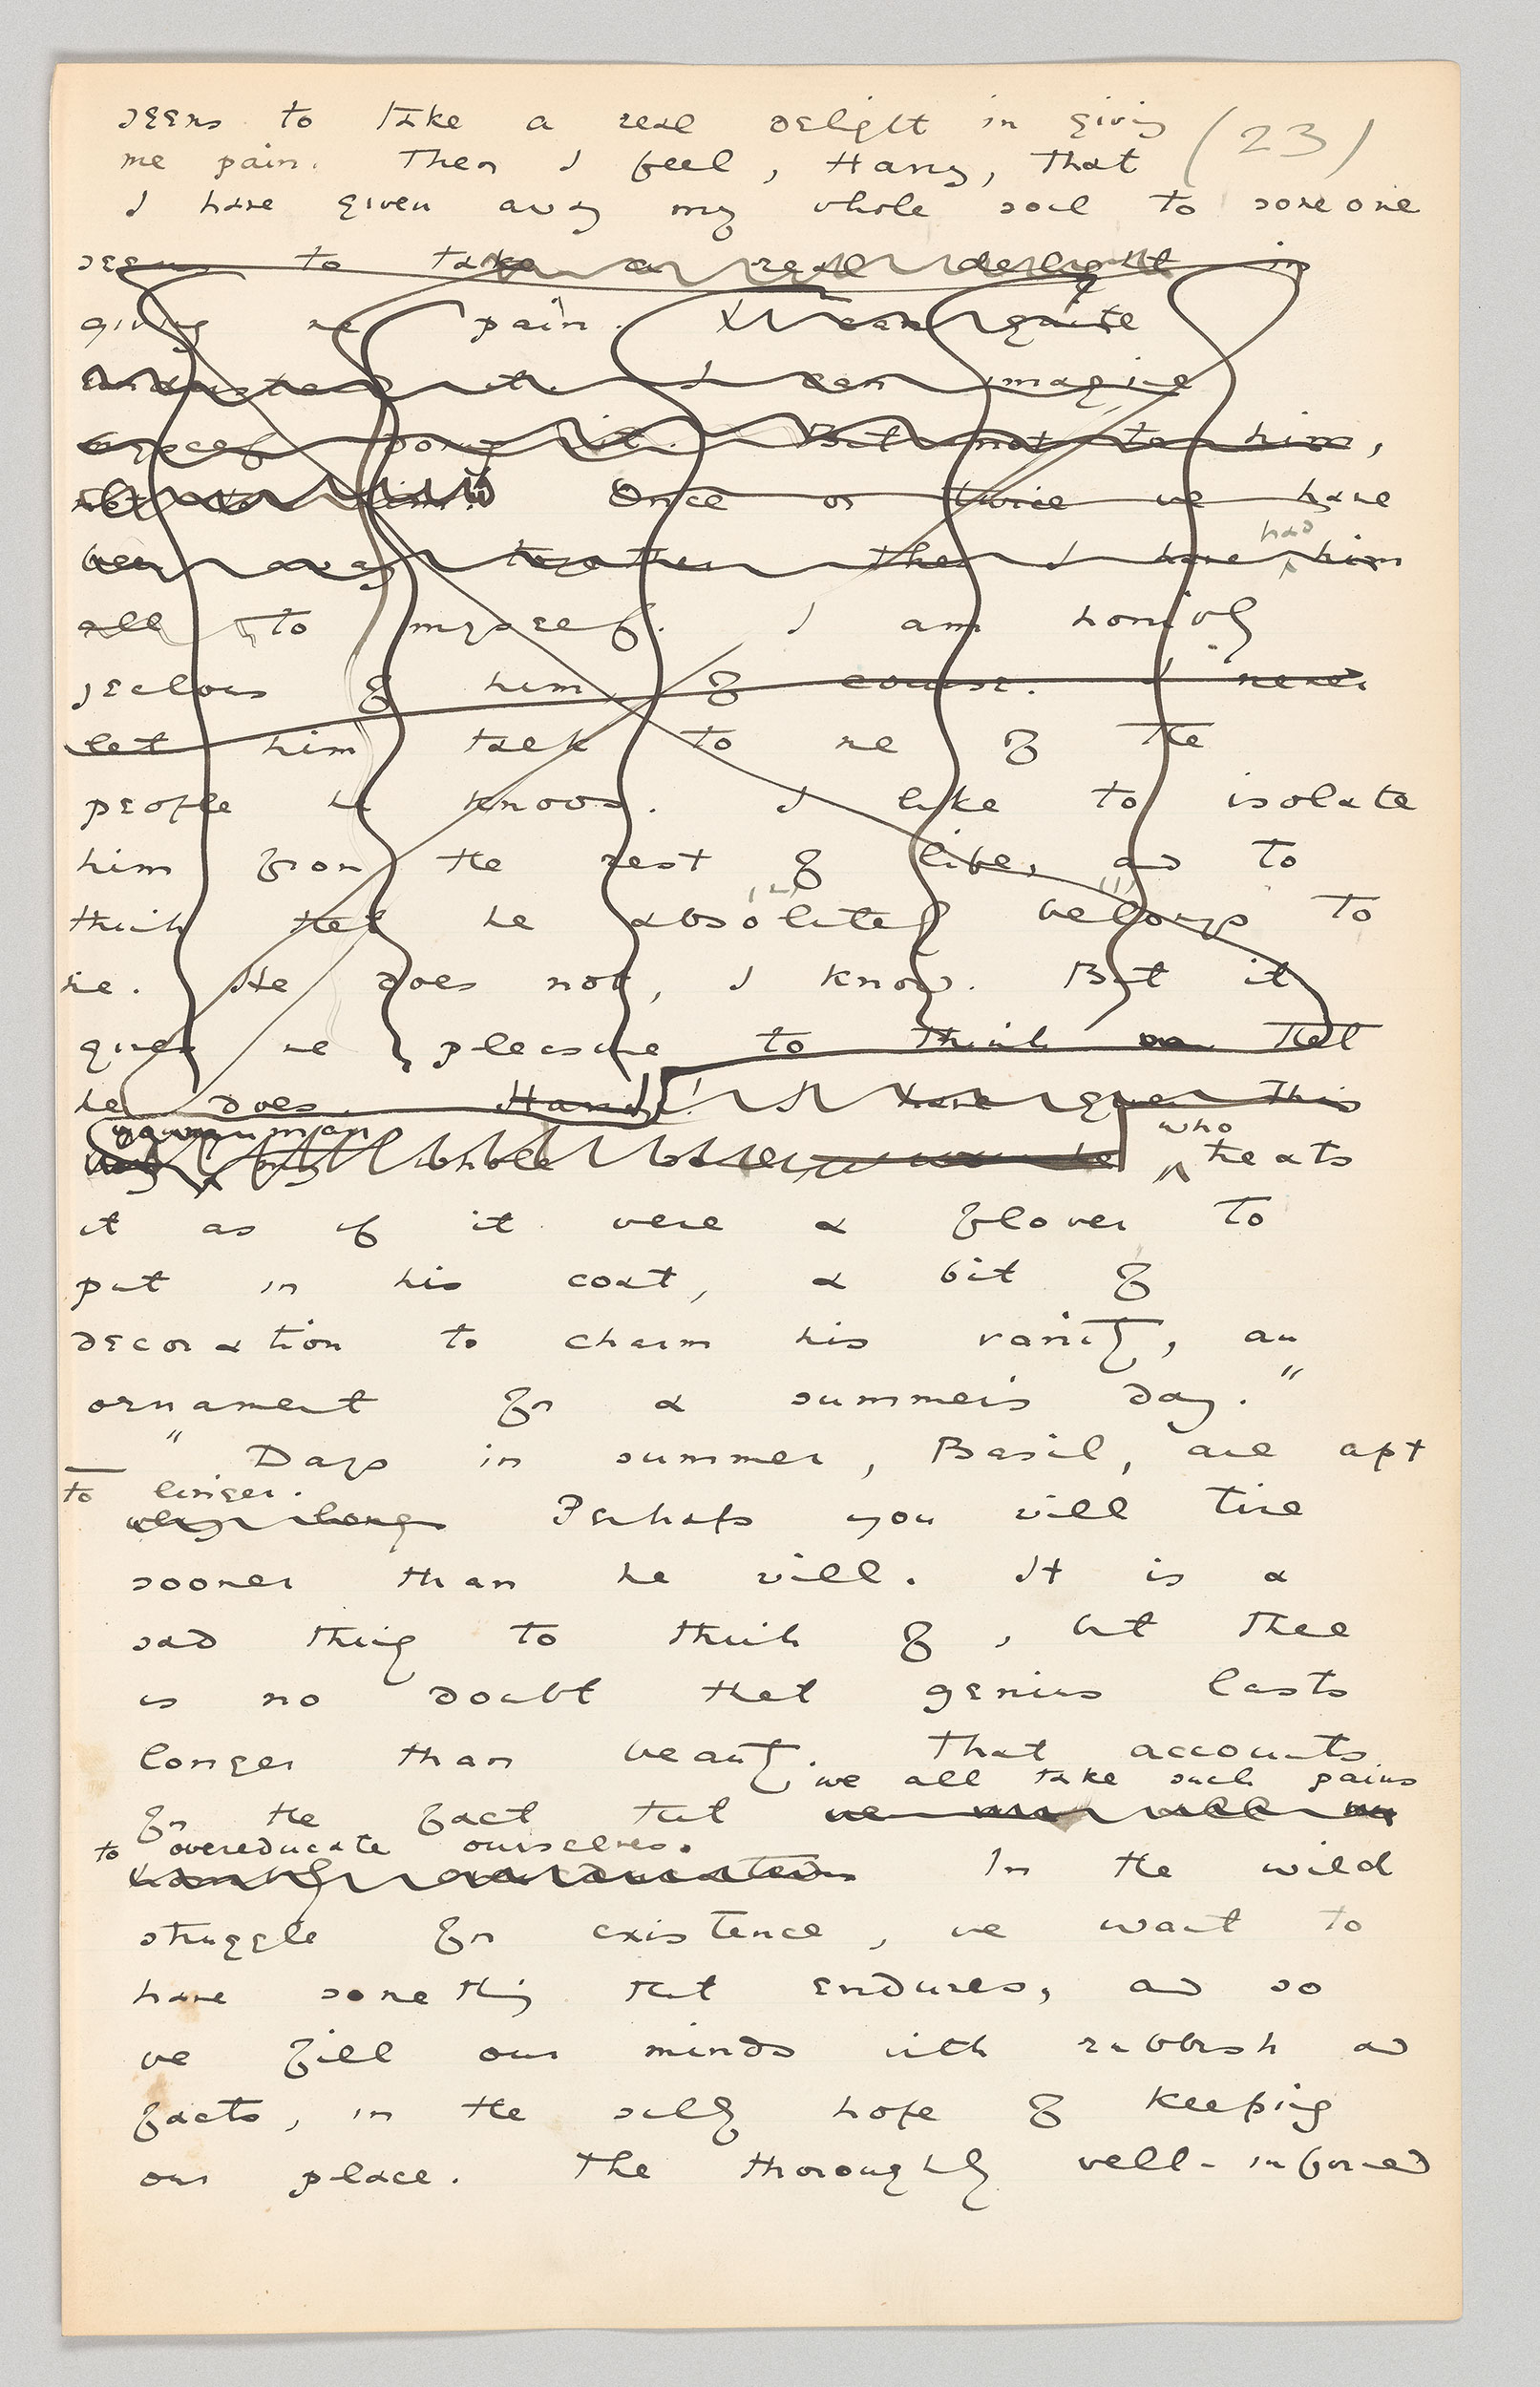 seems to take a real delight in giving (23)
me pain. Then I feel, Harry, that
I have given away my whole soul to someone
seems to take a real delight in
giving me pain. I can quite
understand it. I can imagine
myself doing it. But not to him,
not to him. Once or twice we have
had
been away together, then I have him
all to myself. I am horribly
jealous of him of course. I never
let him talk to me of the
people he knows. I like to isolate
him from the rest of life, and to
think that he absolutely belongs to
me. He does not, I know. But it
gives me pleasure to think that
he does. Harry! I have given this
young man who
my whole treats
it as if it were a flower to
put in his coat, a bit of
decoration to charm his vanity, an
ornament for a summer's day."
"Days in summer, Basil, are apt
to linger.
very long Perhaps you will tire
sooner than he will. It is a
sad thing to think of, but there
is no doubt that genius lasts
longer than beauty. That accounts
we all take such pains
for the fact that we all
to overeducate ourselves.
In the wild
struggle for existence, we want to
have something that endures, and so
we fill our minds with rubbish and
facts, in the silly hope of keeping
our place. The thoroughly well-informed